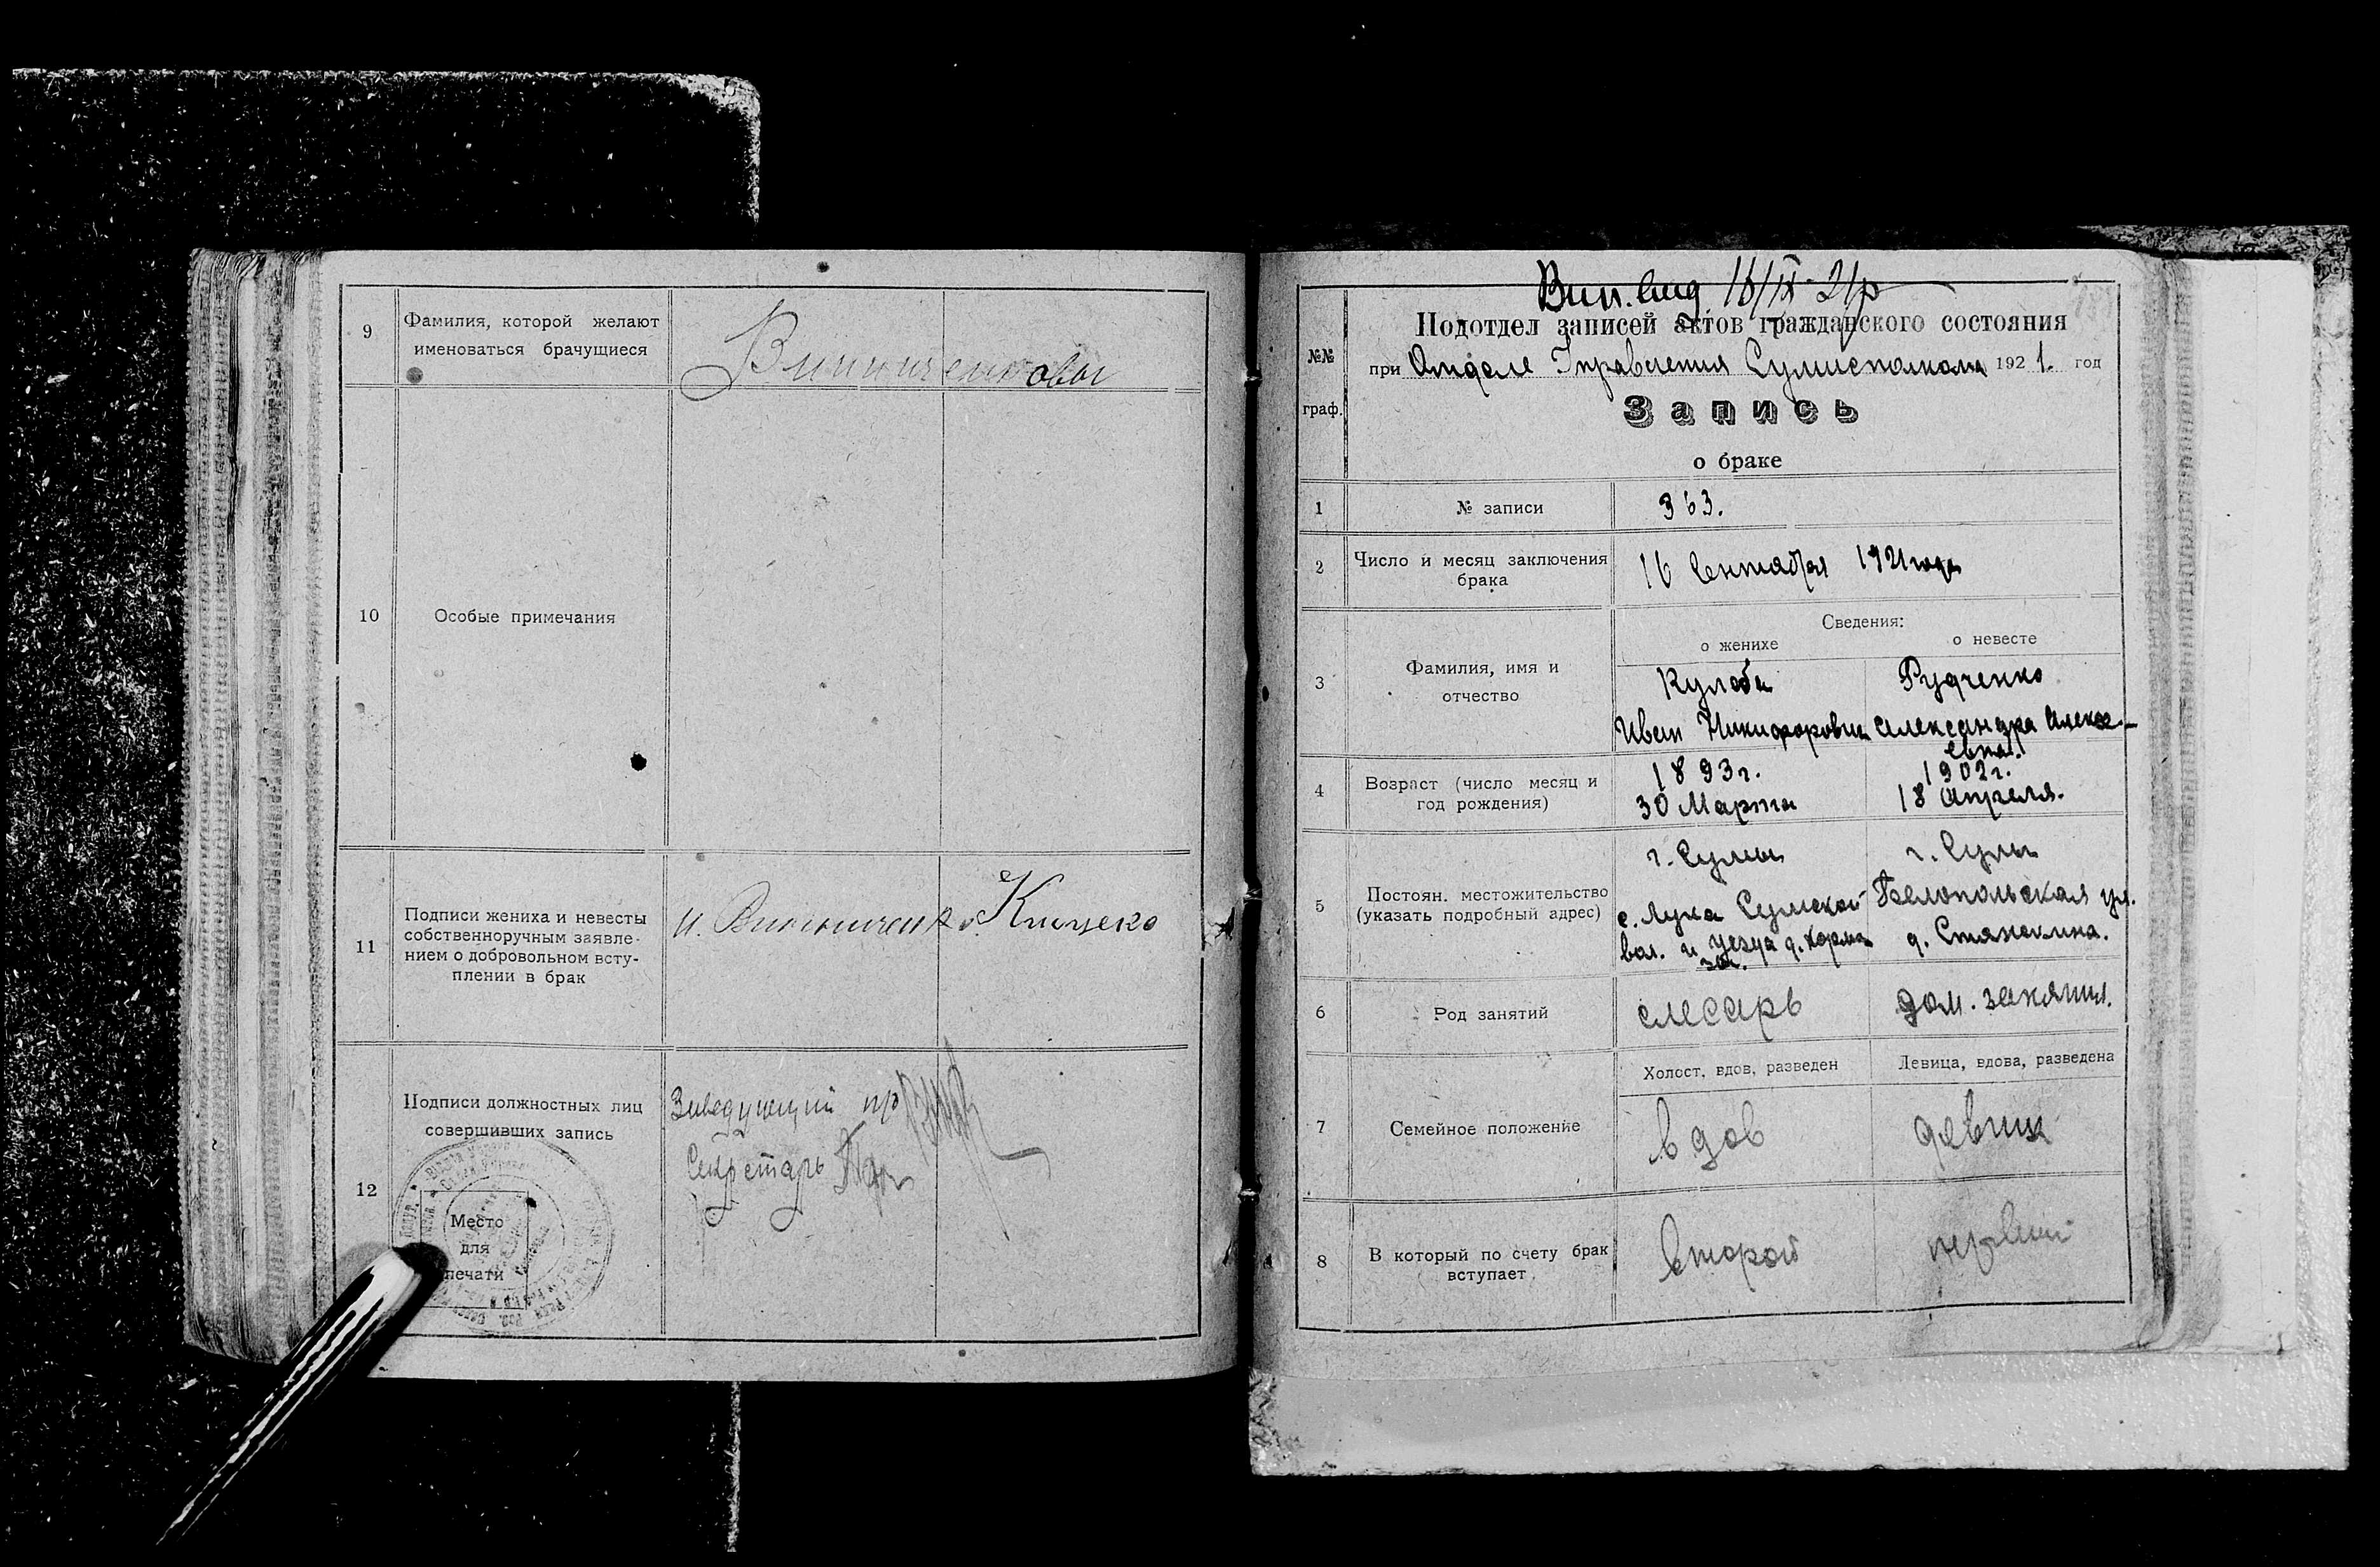 9
Фамилия, которой желают
именоваться брачущиеся
10
Особые примечания
11
Подписи жениха и невесты
собственноручным заявле-
нием о добровольном всту-
плении в брак
И. Винниченко
12
Подписи должностных лиц
совершивших запись
Заведующий
Секретарь
Место
для
печати
Вип. вид 16/IX-21р
№№
граф.
Подотдел записей актов гражданского состояния
при Отделе Управления Сумисполкома 1921. год
Запись
о браке
1
№ записи
363.
2
Число и месяц заключения
брака
16 Сентября 1921 года
Сведения:
о женихе
о невесте
3
Фамилия, имя и
отчество
Рудченко
Иван Никифорович
Александра Алексе-
евна.
4
Возраст (число месяц и
год рождения)
1893г.
30 Марта
1902г.
18 Апреля.
5
Постоян. местожительство
(указать подробный адрес)
г. Сумы
с. Лука Сумской
вол. и уезда д.
г. Сумы
Белопольская ул.
д.
6
Род занятий
слесарь
дом. занятия.
7
Семейное положение
Холост, вдов, разведен
Девица, вдова, разведена
вдов
девица
8
В который по счету брак
вступает
второй
первый